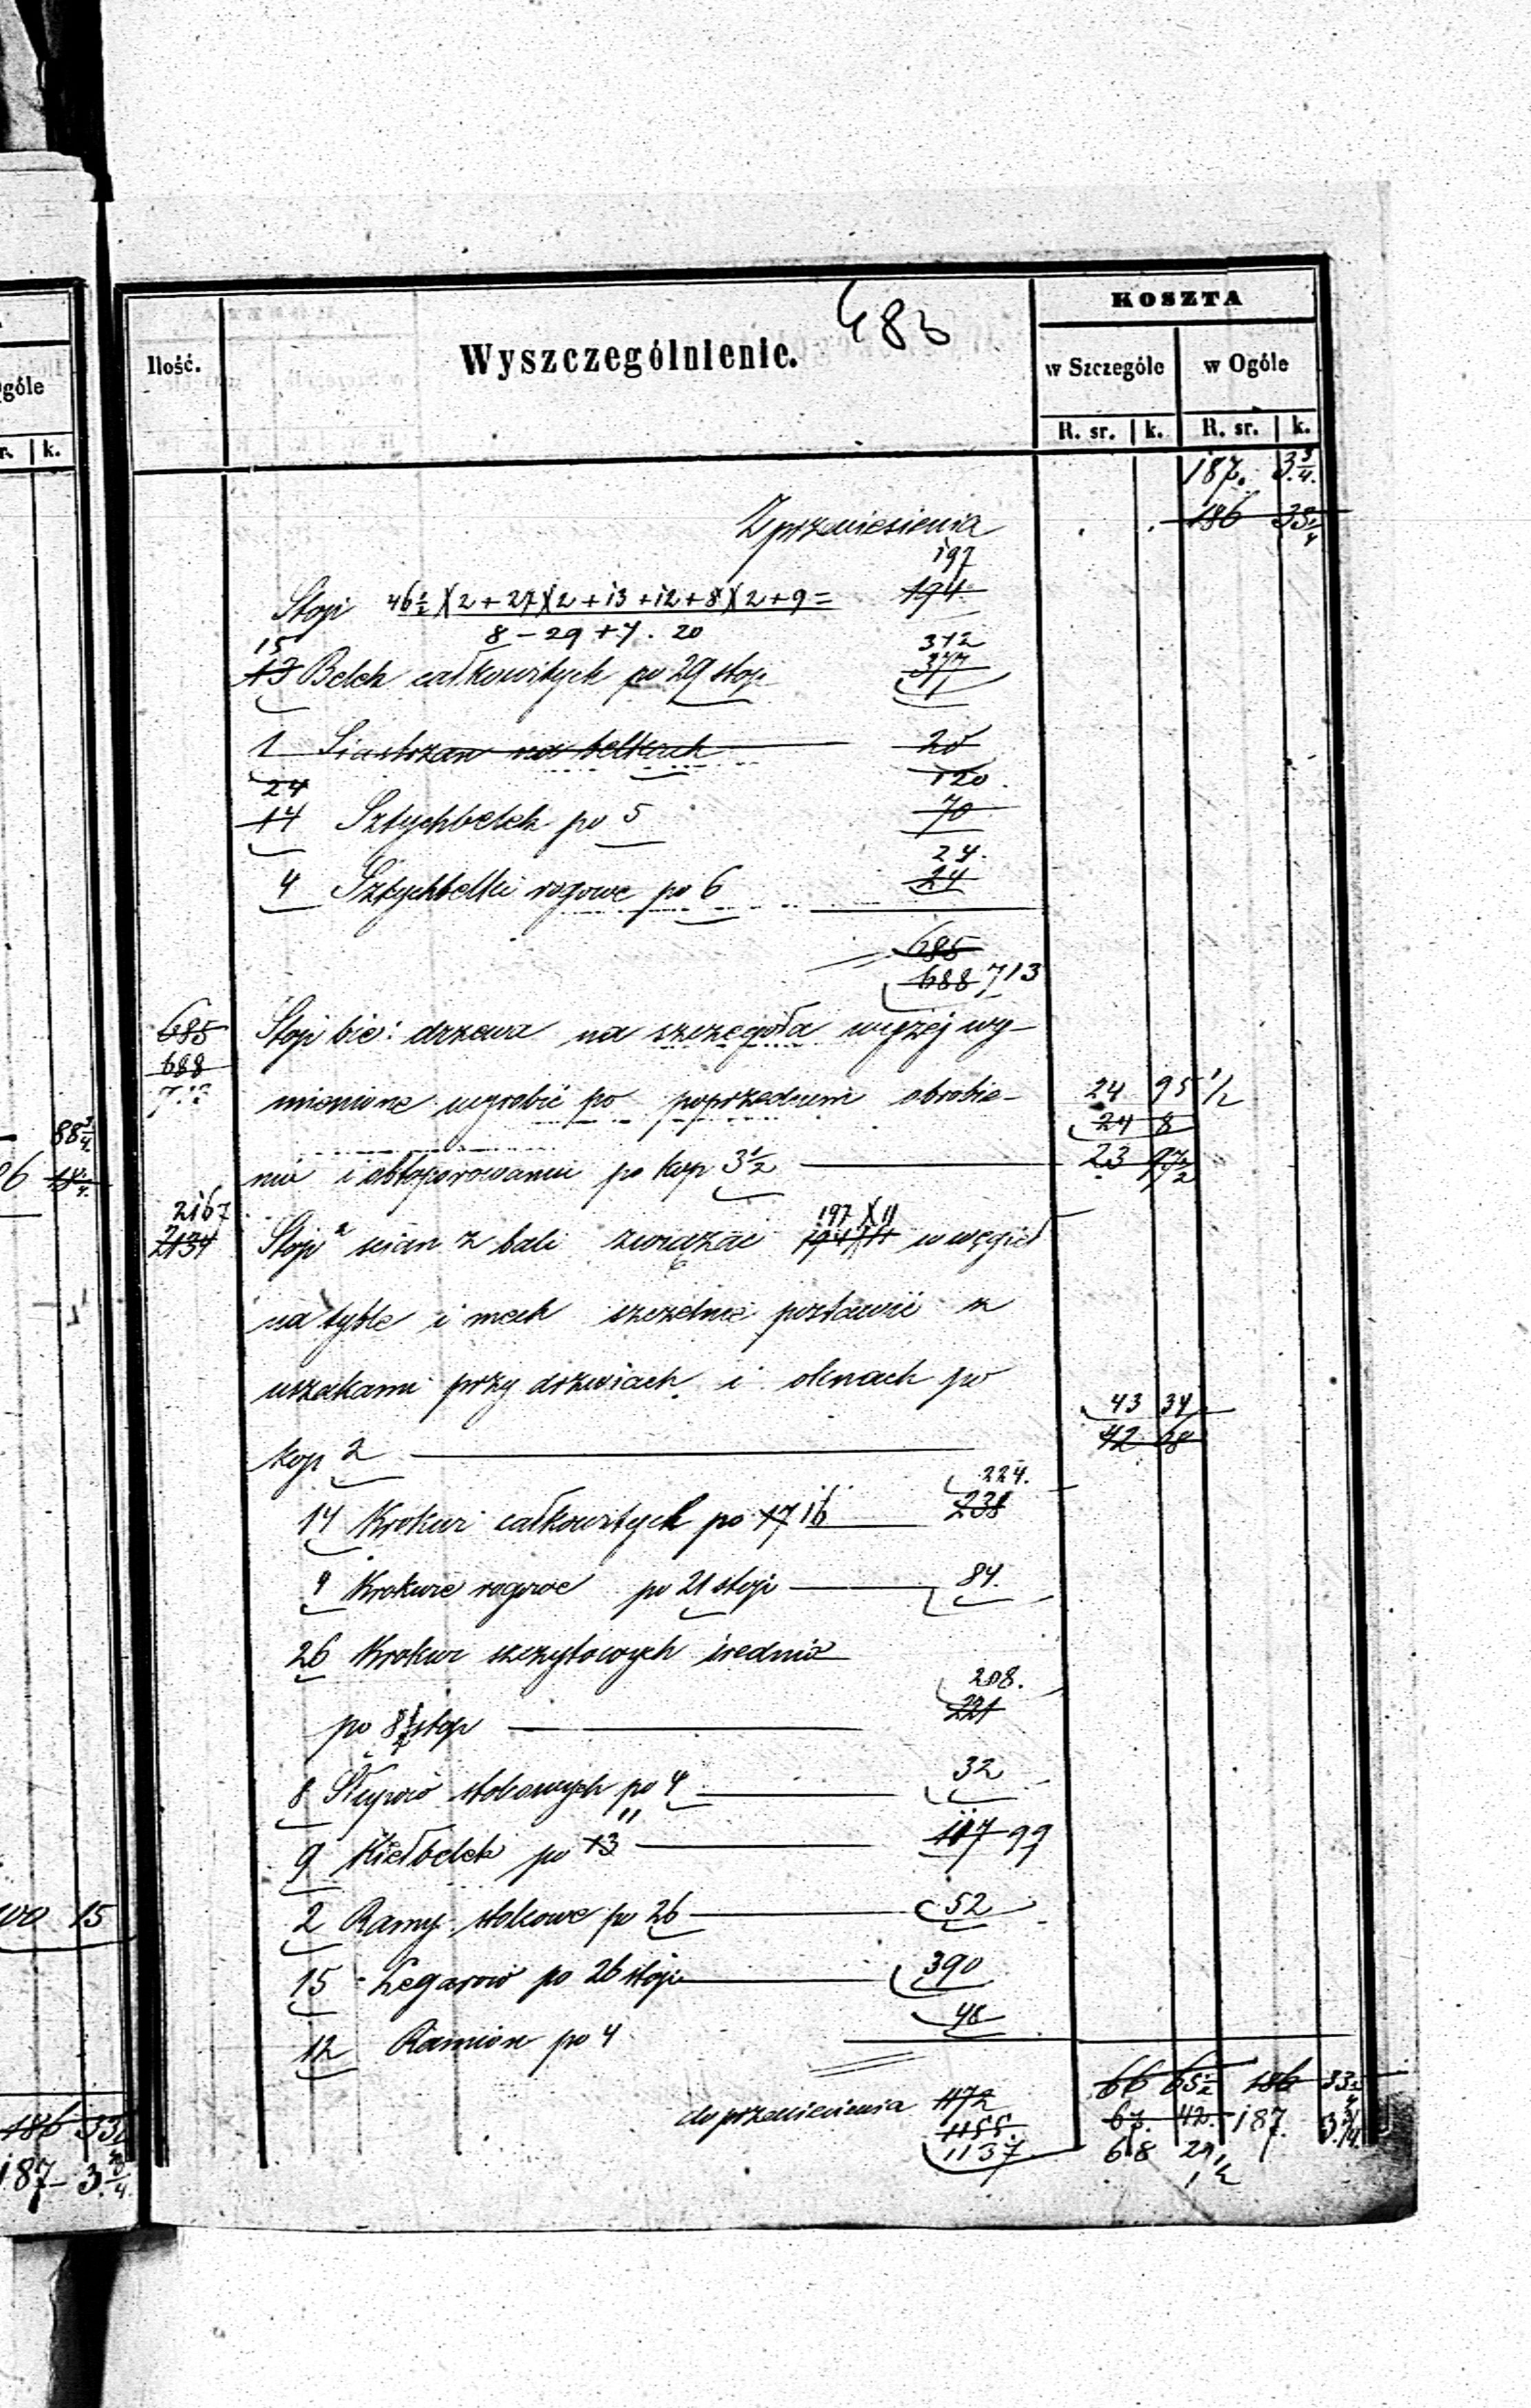 483
KOSZTA
Ilość. Wyszczególnienie. w Szczególe w Ogóle
R. sr. k. R. sr. k.
187. 3 3/4.
Z przeniesienia 186
197
Stop 46 1/2 X 2 + 27 X 2 + 13 + 12 + 8 X 2 + 9 = 194
8 - 29 + 7 . 20
15 312
13 Belek całkowitych po 29 stop 377
1 Siastrzan na belkach 20
24 120.
14 Sztychbelek po 5 70
24.
4 Sztychbelki rogowe po 6 24
685
688 713
685 Stop bie: drzewa na szczegóła wyżej wy-
688
mienione wyrobić po poprzedniem obrobie- 24 95 1/2
24 8
niu i obtoporowaniu po kop 3 1/2 23 97 1/2
2167 197 X 11
2134 Stop² ścian z bali związać 194 X 11 w węgieł
na tyble i mech szczelnie postawić z
uszakami przy drzwiach i oknach po
43 34
kop 2 42 68
224.
14 Krokwi całkowitych po 17 16 238
4 Krokwie rogowe po 21 stop 84.
26 Krokwi szczytowych średnio
208.
po 8 1/2 stop 221
8 Słupców stolcowych po 4 32
11
9 Kielbelek po 13 117 99
2 Ramy stolcowe po 26 52
15 Legarów po 26 stop 390
48
12 Ramion po 4
66 65 1/2 186 33 1/4
do przeniesienia 1172
67. 42. 187. 3. 3/4.
1155.
1137 68 29 1/2
góle
r. k.
88 3/4
100 15
186 33
187- 3. 3/4.